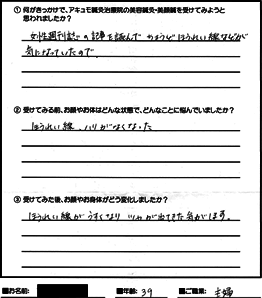 ① 何がきっかけで、アキュモ鍼灸治療院の美容鍼灸・美顔鍼を受けてみようと
思われましたか?
女性週刊誌での記事を読んで ほうれい線などが
気になっていたので、
② 受けてみる前、お顔やお体はどんな状態で、どんなことに悩んでいましたか?
ほうれい線、ハリがなくなった
③ 受けてみた後、お顔やお身体がどう変化しましたか?
ほうれい線がうすくなり ツヤが出てきた気がします。
■お名前: ■年齢: 39 ■ご職業: 主婦